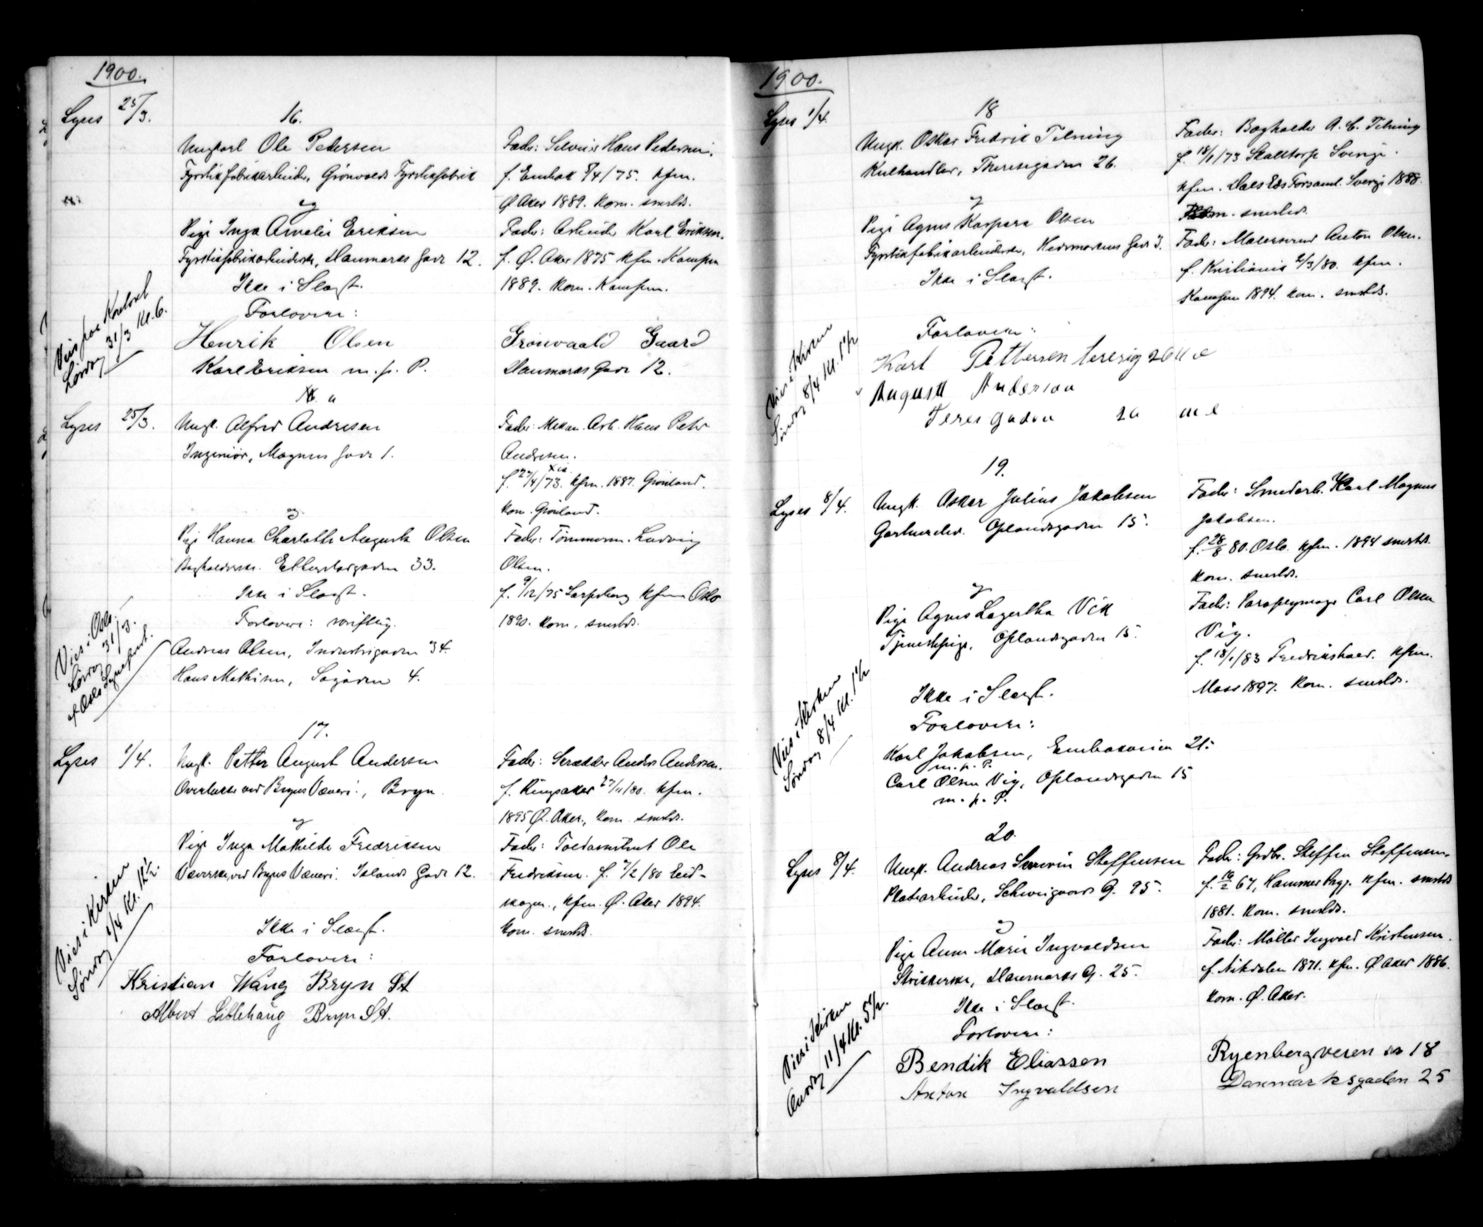 1900.
Lyses 25/3.
16.
Ungkarl Ole Pedersen
Fyrstikfabrikarbeider, Grönvolds Fyrstikfabrik
Fader: Hans Pedersen.
f. Enebak 8/4/75. kfm.
Ø. Aker 1889. kom. smstds.
og
Pige Inga Amalie Eriksen
Fyrstikfabrikarbeiderske, Danmarks Gade 12.
Fader: Arbeider Karl Eriksen.
f. Ø. Aker 1875 kfm. Kampen
1889. kom. Kampen.
Ikke i Slægt.
Forlovere:
Henrik Olsen Grönvaald Gaard
Karl Eriksen m. p. P. Danmarks Gade 12.
Vies paa Kontoret
Lördag 31/3 Kl. 6.
Lyses 25/3.
16 a
Ungk. Alfred Andresen
Ingeniör, Magnus Gade 1.
Fader: Mekan. Arb. Hans Peter
Andresen.
f. 27/4/73. kfm. 1887. Grönland.
kom. Grönland.
og
Pige Hanna Charlotte Augusta Olsen
Bogholderske. Etterstadgaden 33.
Fader: Tömmerm. Ludvig
Olsen.
f. 9/12/75 Sarpsborg kfm Oslo
1890. kom. smstds.
Ikke i Slægt.
Forlovere: skriftlig.
Andreas Olsen, Industrigaden 34
Hans Mathisen, Sogaden 4.
Vies i Oslo
Lördag 31/3.
af Oslo Sogneprest.
17.
Lyses 1/4.
Ungk. Petter August Andersen
ved Bryns Væveri, Bryn.
Fader: Skrædder Anders Andersen.
f. Ringsaker 27/11/80. kfm.
1895 Ø. Aker, kom. smstds.
og
Pige Inga Mathilde Fredriksen
Væverske, ved Bryns Væveri. Islands Gade 12.
Fader: Toldassistent Ole
Fredriksen. f. 7/2/80 Eid-
skogen, kfm. Ø. Aker 1894.
kom. smstds.
Ikke i Slægt.
Forlovere:
Kristian Wang Bryn St
Albert Lillehaug Bryn St.
Vies i Kirken
Söndag 1/4 Kl. 12 1/2.
1900.
Lyses 1/4.
18
Ungk. Oskar Fredrik Tilning
Kulhandler, Theresegaden 26.
Fader: Bogholder A. C. Tilning
f. 18/1/73 Skalltorp Sverige.
kfm. Dals Eds Forsaml. Sverige 1888.
kom. smstds.
og
Pige Agnes Kaspara Olsen
Fyrstikfabrikarbeiderske, Hedemarkens Gade 3.
Fader: Malersvend Anton Olsen.
f. Kristiania 2/3/80. kfm.
Kampen 1894. kom. smstds.
Ikke i Slægt.
Forlovere:
Karl Pettersen teresig 26
August Anderson
Teres gaden 20
Vies i Kirken
Söndag 8/4 Kl. 1 1/2
19.
Lyses 8/4.
Ungk. Oskar Julius Jakobsen
Gartnerelev. Oplandsgaden 15.
Fader: Smedarb. Karl Magnus
Jakobsen.
f. 28/8 80. Oslo. kfm. 1894 smstds.
kom. smstds.
og
Pige Agnes Lagertha Vik
Tjenestepige, Oplandsgaden 15.
Fader: Paraplymager Carl Olsen
Vig.
f. 18/1/83 Fredrikshald. kfm.
Moss 1897. kom. smstds.
Ikke i Slægt.
Forlovere:
Karl Jakobsen, Enebakveien 21.
m. p. P.
Carl Olsen Vig, Oplandsgaden 15
m. p. P.
Vies i Kirken
Söndag 8/4 Kl. 1 1/2
20.
Lyses 8/4.
Ungk. Andreas Severin Steffensen
Pladsarbeider, Schweigaards G. 95.
Fader: Grdbr. Steffen Steffensen.
f. 16/2 67, Hammer Prgj. kfm. smstds
1881. kom. smstds.
og
Pige Anna Marie Ingvaldsen
Strikkerske, Danmarks G. 25.
Fader: Möller Ingvald Kristensen.
f. Nitedalen 1871. kfm. Ø Aker 1886.
kom. Ø. Aker.
Ikke i Slægt.
Forlovere:
Bendik Eliassen Ryenbergveien no 18
Anton Ingvaldsen Danmarksgaden 25
Vies i Kirken
Onsdag 11/4 Kl. 5 1/2.